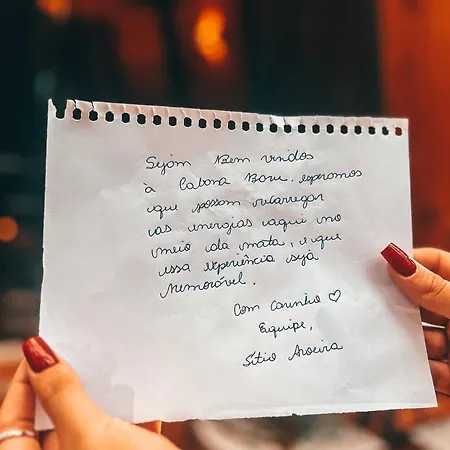 Sejam Bem vindos
à Cabana Bozu, esperamos
que possam recarregar
as energias aqui no
meio da mata, e que
essa experiência seja
memorável.
Com Carinho ♡
Equipe,
Sítio Aroeira